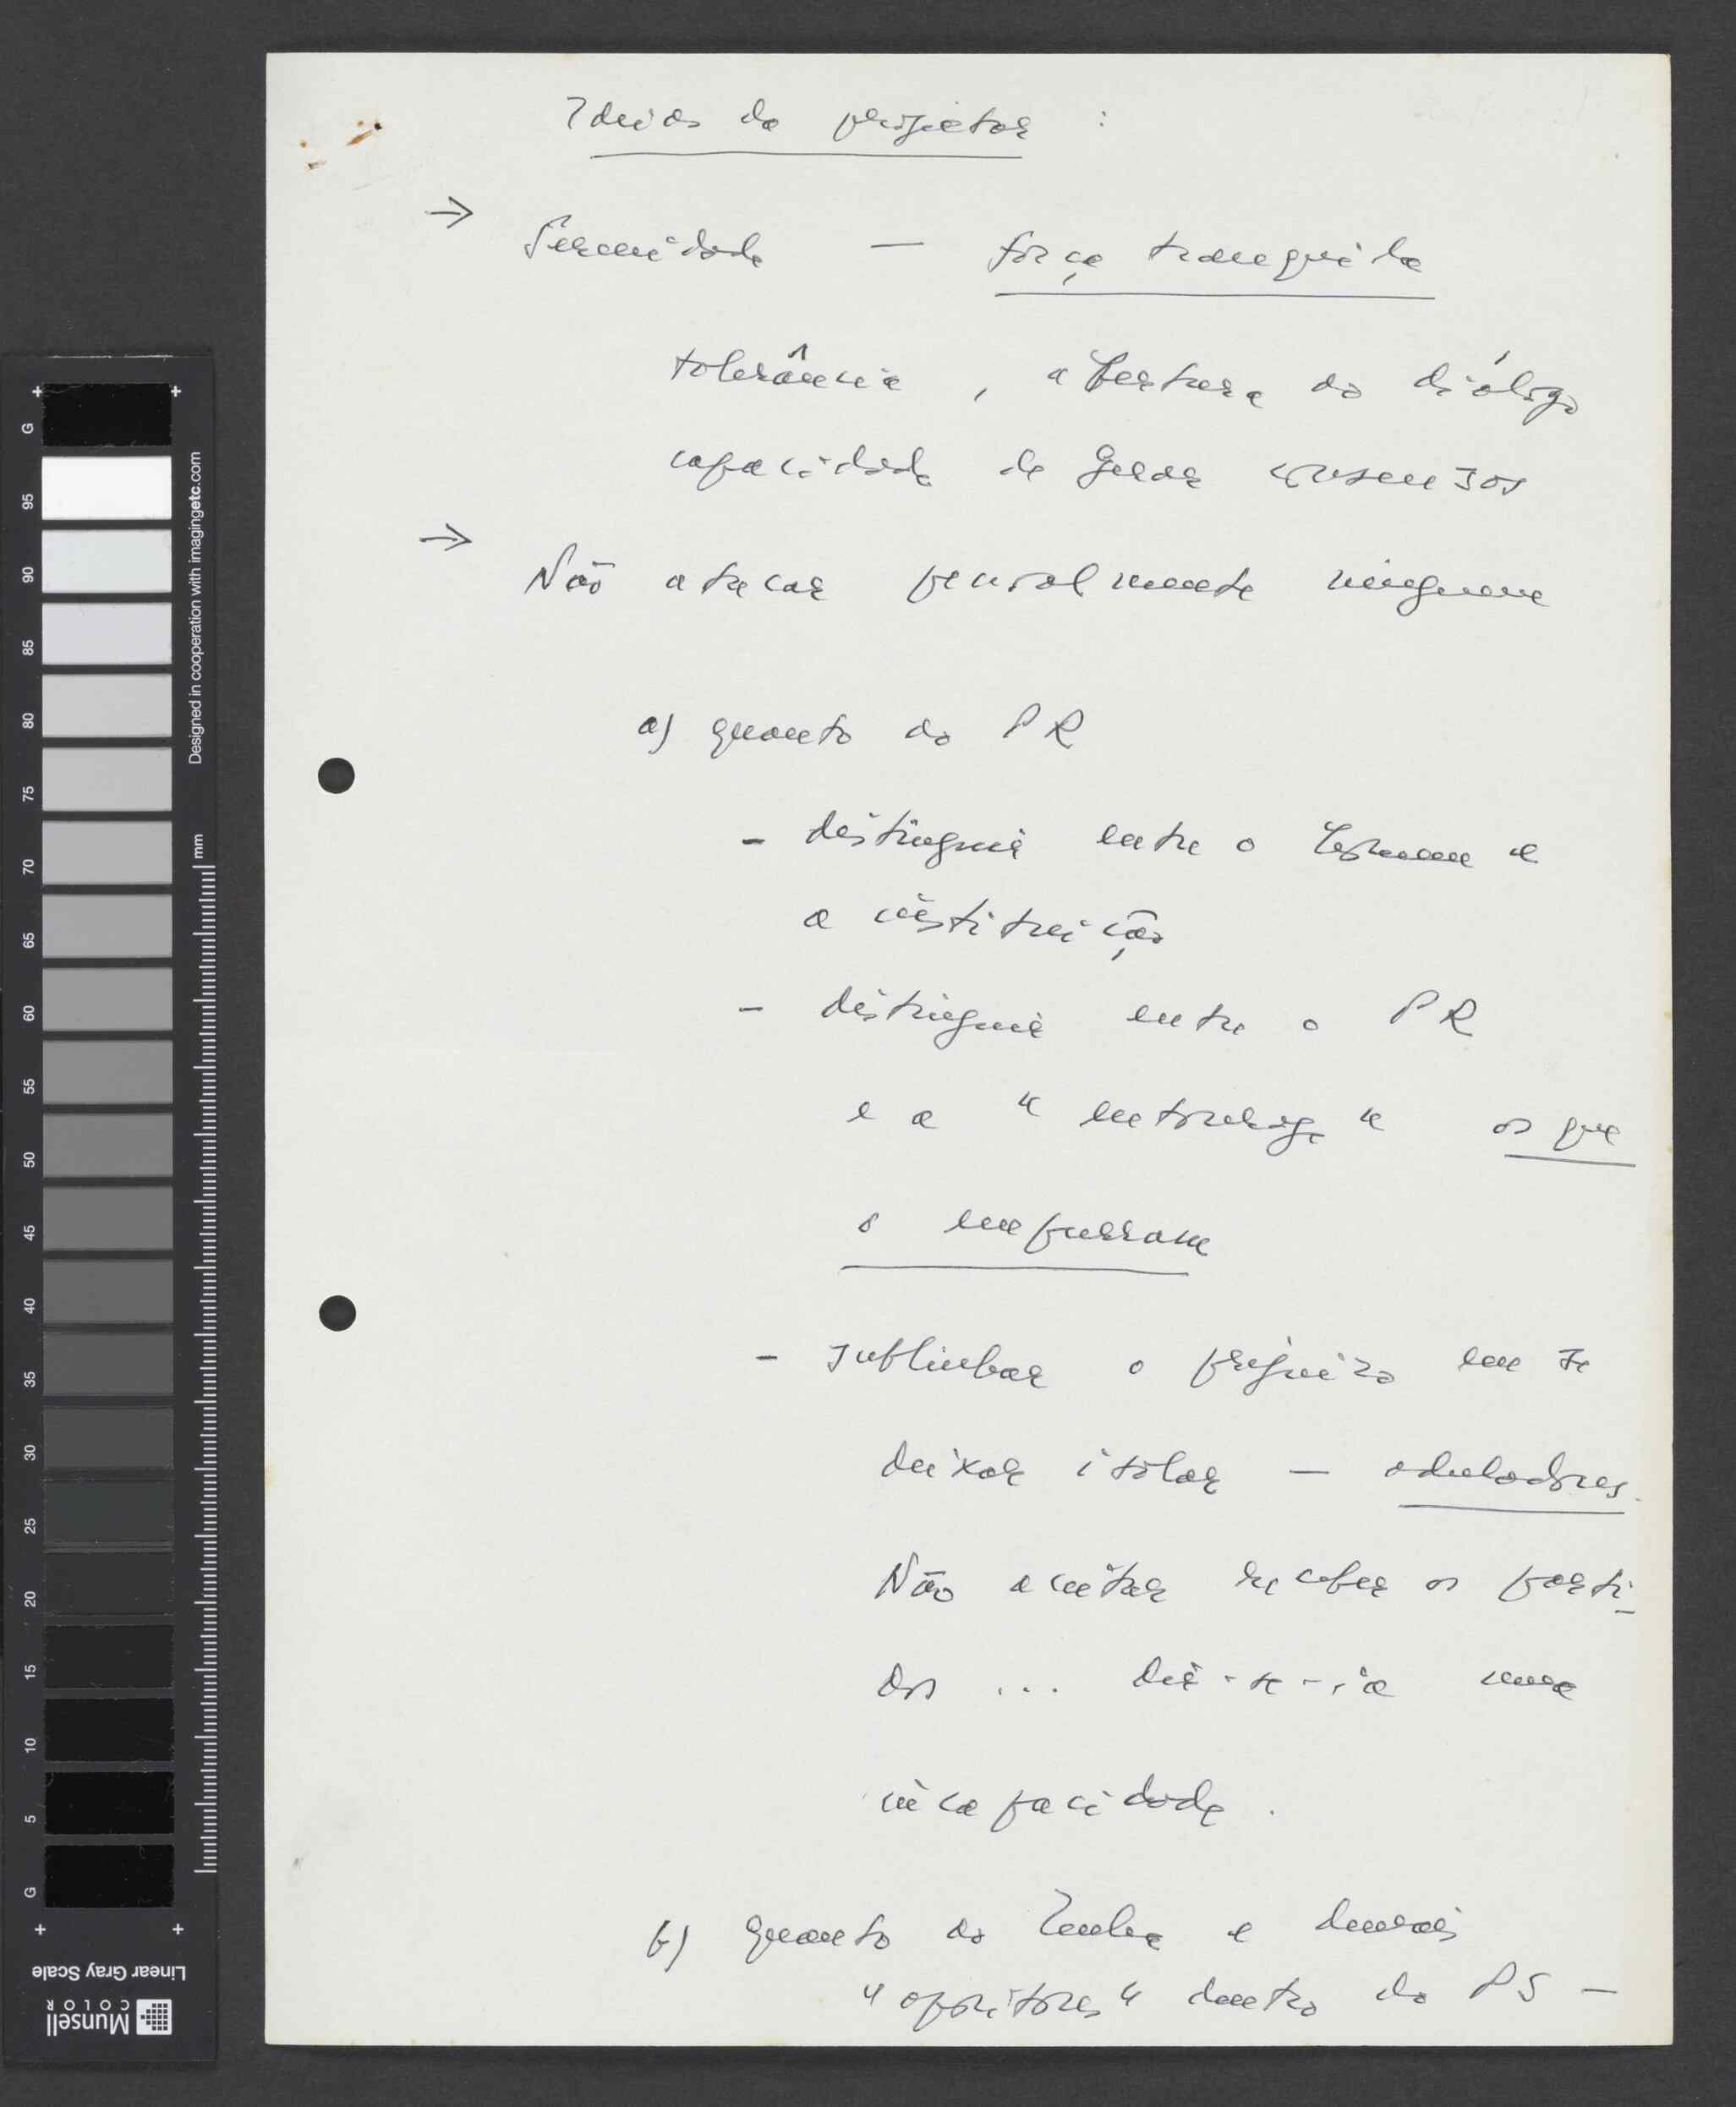 Ideias a projectar :
→ Serenidade — força tranquila
tolerância, abertura ao diálogo
capacidade de gerar consensos
→ Não atacar pessoalmente ninguem
a) quanto ao PR
- distinguir entre o homem e
a instituição
- distinguir entre o PR
e a " entourage " os que
o empurram
- sublinhar o prejuizo em se
deixar isolar — aduladores.
Não aceitar receber os parti-
dos ... dir-se-ia uma
incapacidade.
b) quanto ao Zenha e demais
"opositores" dentro do PS —
G 95 90 85 80 75 70 65 60 55 50 45 40 35 30 25 20 15 10 5 G
Designed in cooperation with imagingetc.com
mm
Linear Gray Scale
Munsell
COLOR